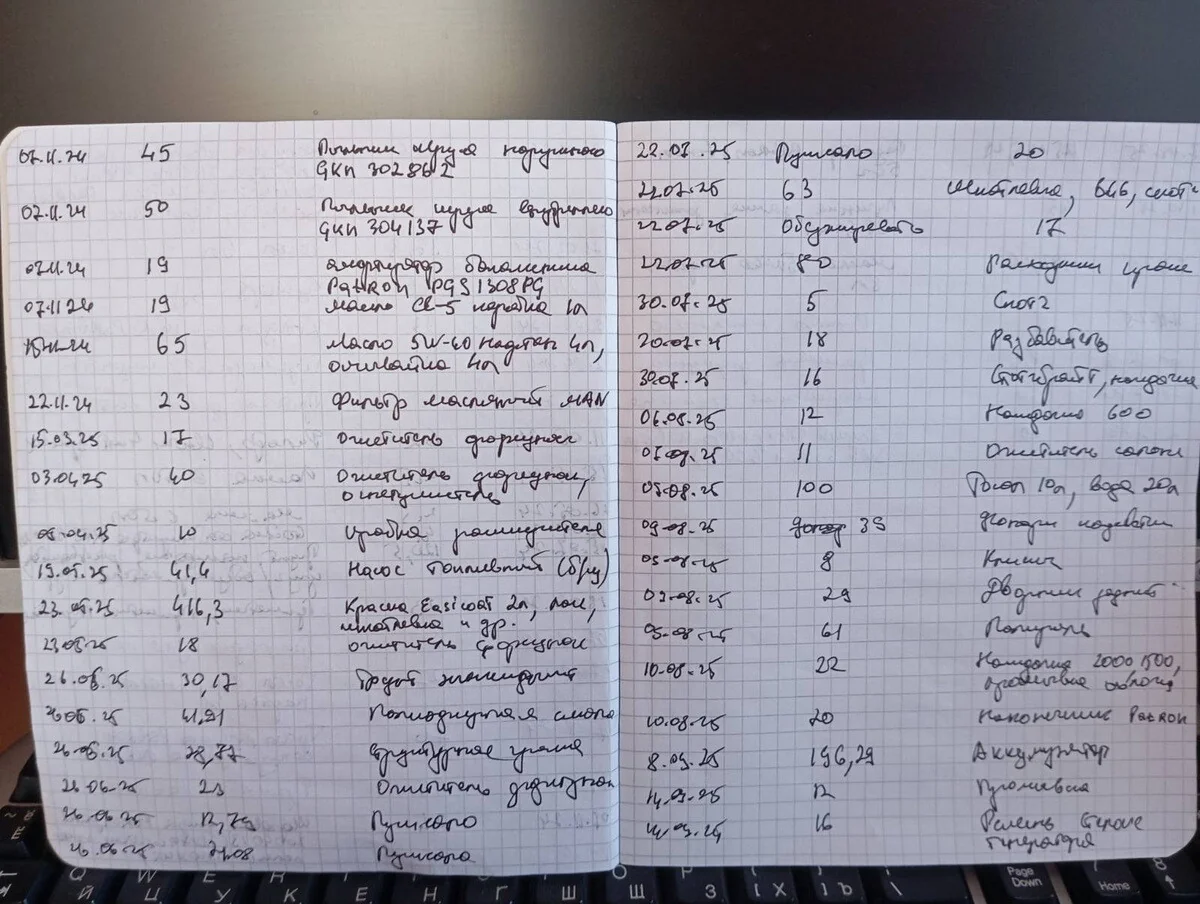 07.11.24 45 Пыльник шруса наружного
GKN 302862
07.11.24 50 Пыльник шруса внутреннего
GKN 304137
07.11.24 19 амортизатор багажника
PatRON PGS1308PG
07.11.24 19 масло коробка 1л
15.11.24 65 Масло 5W-40 4л,
4л
22.11.24 23 Фильтр масляный MAN
15.03.25 17 Очиститель форсунок
03.04.25 40 Очиститель форсунок,
09.04.25 10 пробка расширителя
19.05.25 41,4 Насос топливный (б/у)
23.05.25 416,3 Краска Easicoat 2л, лак,
шпатлевка и др.
23.05.25 18 Очиститель форсунок
26.05.25 30,17 Грунт эпоксидный
26.05.25 41,91 Полиэфирная смола
26.05.25 28,77 Структурное
26.06.25 23 Очиститель форсунок
26.06.25 12,79 Пушсало
26.06.25 Пушсало
22.07.25 Пушсало 20
22.07.25 63 Шпатлевка, 646, скотч
22.07.25 17
22.07.25 80 Расходники
30.07.25 5 Скотч
30.07.25 18 Разбавитель
30.07.25 16 Скотчбрайт, наждачка
06.08.25 12 Наждачка 600
07.08.25 11 Очиститель салона
09.08.25 100 Тосол 10л, вода 20л
09.08.25 39 Фонари
09.08.25 8
09.08.25 29 Дворники задний
09.08.25 61
10.08.25 22 Наждачка 2000 1500,
10.08.25 20 Наконечник PatRON
8.09.25 196,29 Аккумулятор
14.09.25 12
14.09.25 16 Ремень
генератора